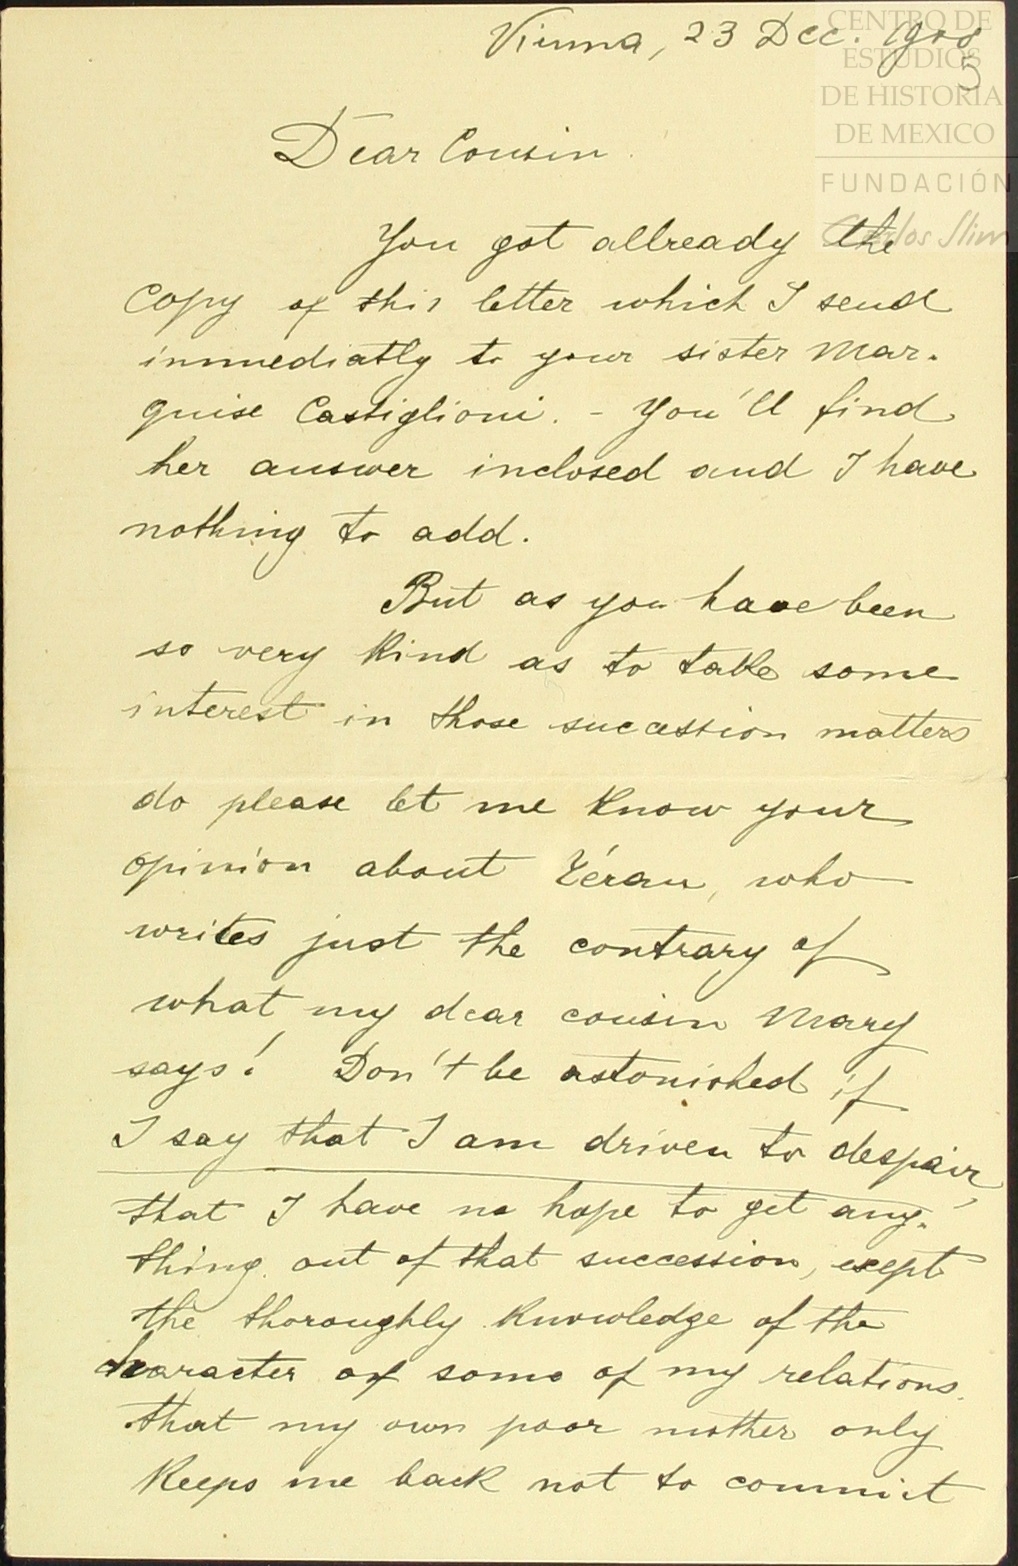 Vienna, 23 Dec. 1908
5
CENTRO DE
ESTUDIOS
DE HISTORIA
DE MEXICO
FUNDACIÓN
Carlos Slim
Dear Cousin.
You got allready the
copy of this letter which I send
immediatly to your sister Mar-
quise Castiglioni. - You'll find
her answer inclosed and I have
nothing to add.
But as you have been
so very kind as to take some
interest in those succession matters
do please let me know your
opinion about Yéran, who
writes just the contrary of
what my dear cousin Mary
says! Don't be astonished if
I say that I am driven to despair,
that I have no hope to get any-
thing out of that succession, exept
the thoroughly knowledge of the
character of some of my relations.
that my own poor mother only
keeps me back not to commit